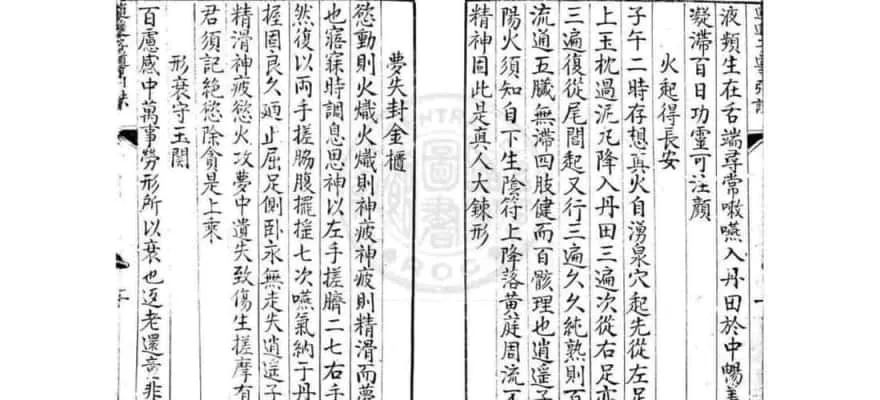 液頻生在舌端尋常嗽嚥入丹田於中暢美
凝滯百日功靈可注顏
火起得長安
子午二時存想真火自湧泉穴起先從左足
上玉枕過泥丸降入丹田三遍次從右足亦
三遍復從尾閭起又行三遍久久純熟則百
流通五臟無滯四肢健而百骸理也逍遙子
陽火須知自下生陰符上降落黃庭周流不
精神固此是真人大鍊形
夢失封金櫃
慾動則火熾火熾則神疲神疲則精滑而夢
也寤寐時調息思神以左手搓臍二七右手
然復以兩手搓脇腹擺搖七次嚥氣納于丹
握固良久廼止屈足側卧永無走失逍遙子
精滑神疲慾火攻夢中遺失致傷生搓摩有
君須記絕慾除貪是上乘
形衰守玉關
百慮感中萬事勞形所以衰也返老還童非